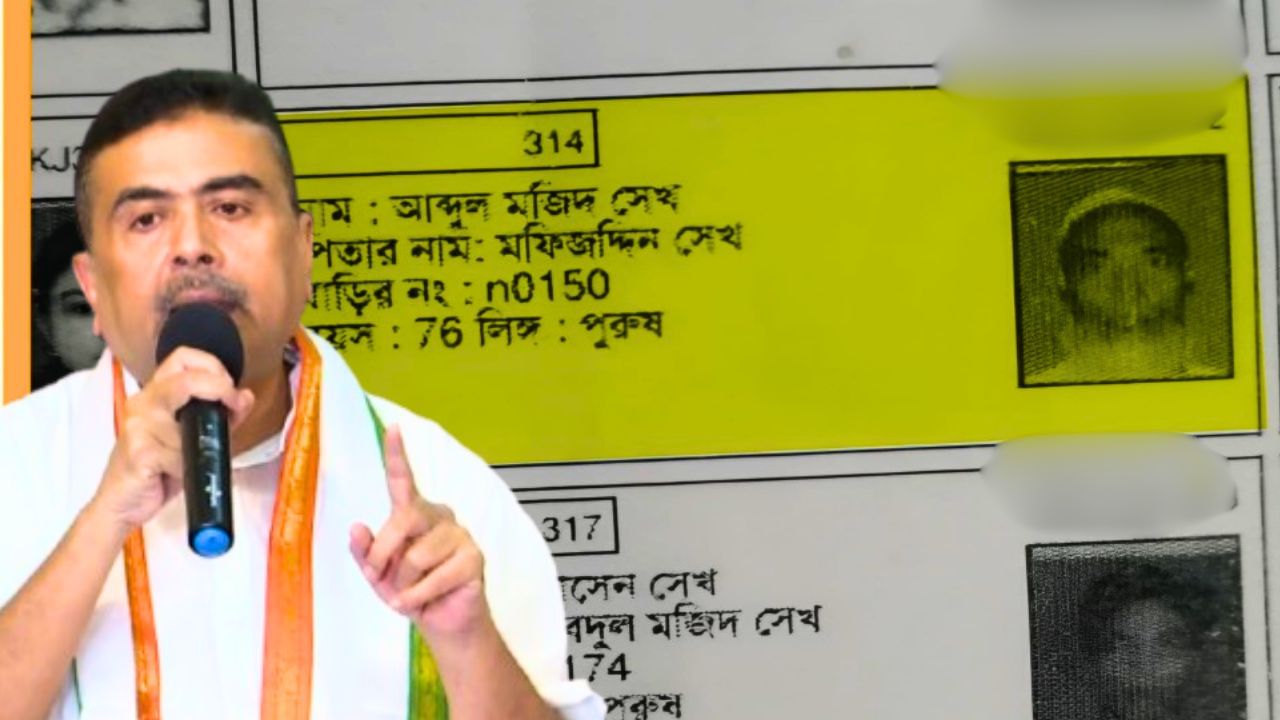 314
নাম : আব্দুল মজিদ সেখ
পিতার নাম: মফিজদ্দিন সেখ
বাড়ির নং : n0150
বয়স : 76 লিঙ্গ : পুরুষ
317
সেন সেখ
বদুল মজিদ সেখ
174
পুরুষ